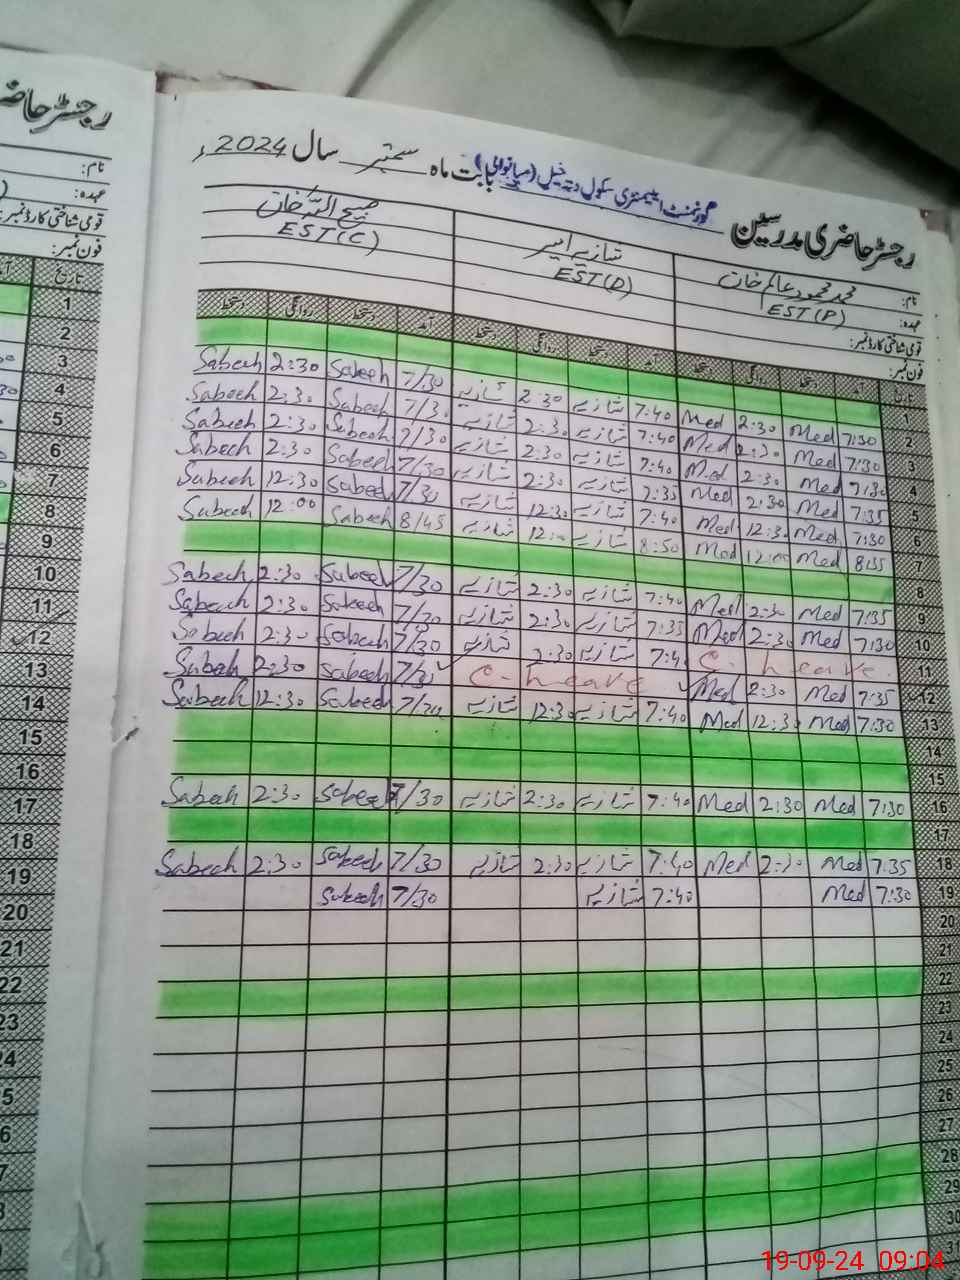 رجسٹر حاضری مدرسین گورنمنٹ ایلیمنٹری سکول دتہ خیل (میانوالی) بابت ماہ ستمبر سال 2024ء
نام: محمد محمود عالم خان شازیہ امیر صبیح اللہ خان
عہدہ: EST(P) EST(D) EST(C)
قومی شناختی کارڈ نمبر:
فون نمبر:
تاریخ آمد دستخط روانگی دستخط آمد دستخط روانگی دستخط آمد دستخط روانگی دستخط
1
2 7:30 Med 2:30 Med 7:40 شازیہ 2:30 شازیہ 7/30 Sabeeh 2:30 Sabeeh
3 7:30 Med 2:30 Med 7:40 شازیہ 2:30 شازیہ 7/30 Sabeeh 2:30 Sabeeh
4 7:30 Med 2:30 Med 7:40 شازیہ 2:30 شازیہ 7/30 Sabeeh 2:30 Sabeeh
5 7:35 Med 2:30 Med 7:35 شازیہ 2:30 شازیہ 7/30 Sabeeh 2:30 Sabeeh
6 7:30 Med 12:30 Med 7:40 شازیہ 12:30 شازیہ 7/30 Sabeeh 12:30 Sabeeh
7 8:55 Med 12:00 Med 8:50 شازیہ 12:00 شازیہ 8/45 Sabeeh 12:00 Sabeeh
8
9 7:35 Med 2:30 Med 7:40 شازیہ 2:30 شازیہ 7/30 Sabeeh 2:30 Sabeeh
10 7:30 Med 2:30 Med 7:35 شازیہ 2:30 شازیہ 7/30 Sabeeh 2:30 Sabeeh
11 C-leave 7:40 شازیہ 2:30 شازیہ 7/30 Sabeeh 2:30 Sabeeh
12 7:35 Med 2:30 Med C-leave 7/30 Sabeeh 2:30 Sabeeh
13 7:30 Med 12:30 Med 7:40 شازیہ 12:30 شازیہ 7/30 Sabeeh 12:30 Sabeeh
14
15
16 7:30 Med 2:30 Med 7:40 شازیہ 2:30 شازیہ 7/30 Sabeeh 2:30 Sabeeh
17
18 7:35 Med 2:30 Med 7:40 شازیہ 2:30 شازیہ 7/30 Sabeeh 2:30 Sabeeh
19 7:30 Med 7:40 شازیہ 7/30 Sabeeh
20
21
22
23
24
25
26
27
28
29
30
31
رجسٹر حاضری
نام:
عہدہ:
قومی شناختی کارڈ نمبر:
فون نمبر:
تاریخ
1
2
3
4
5
6
7
8
9
10
11
12
13
14
15
16
17
18
19
20
21
22
23
19-09-24 09:04